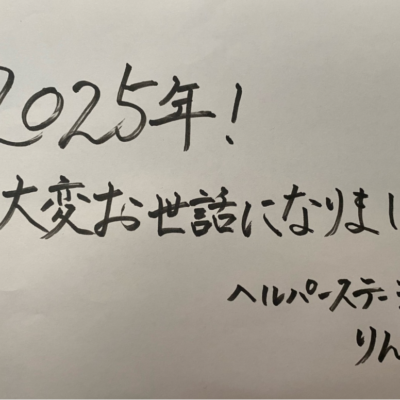 2025年!
大変お世話になりまし
ヘルパーステー
りん